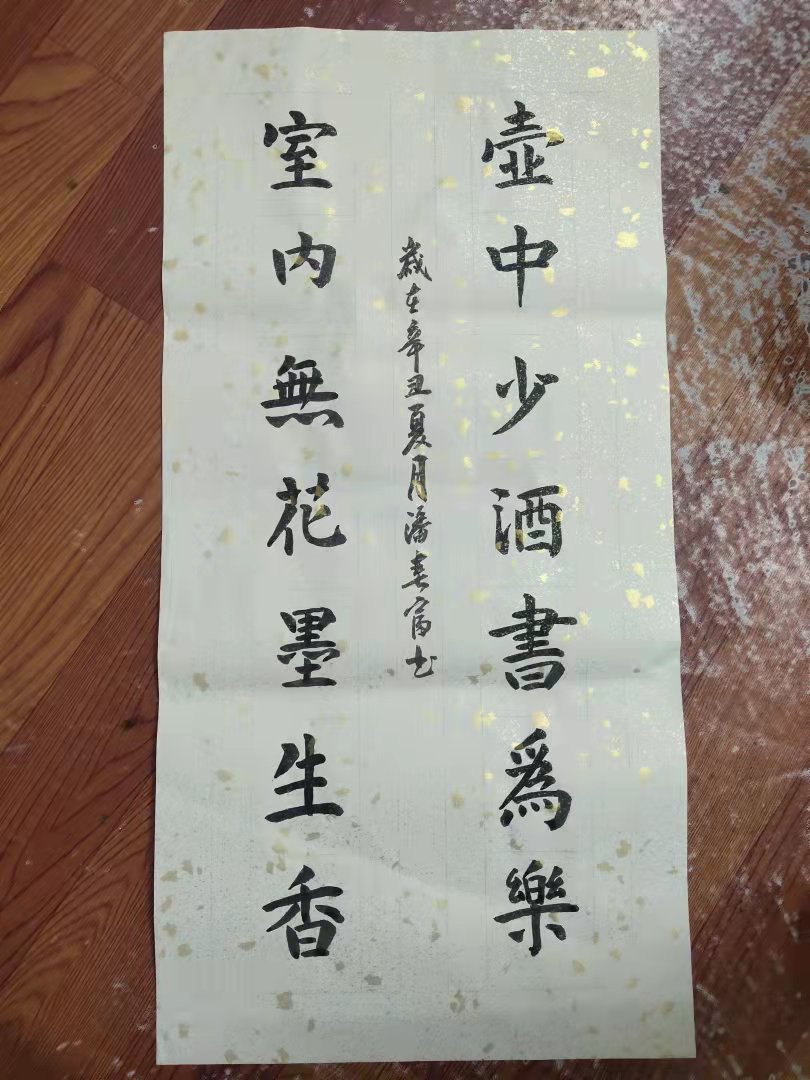 壺中少酒書為樂
室内無花墨生香
歲在辛丑夏月潘春富书